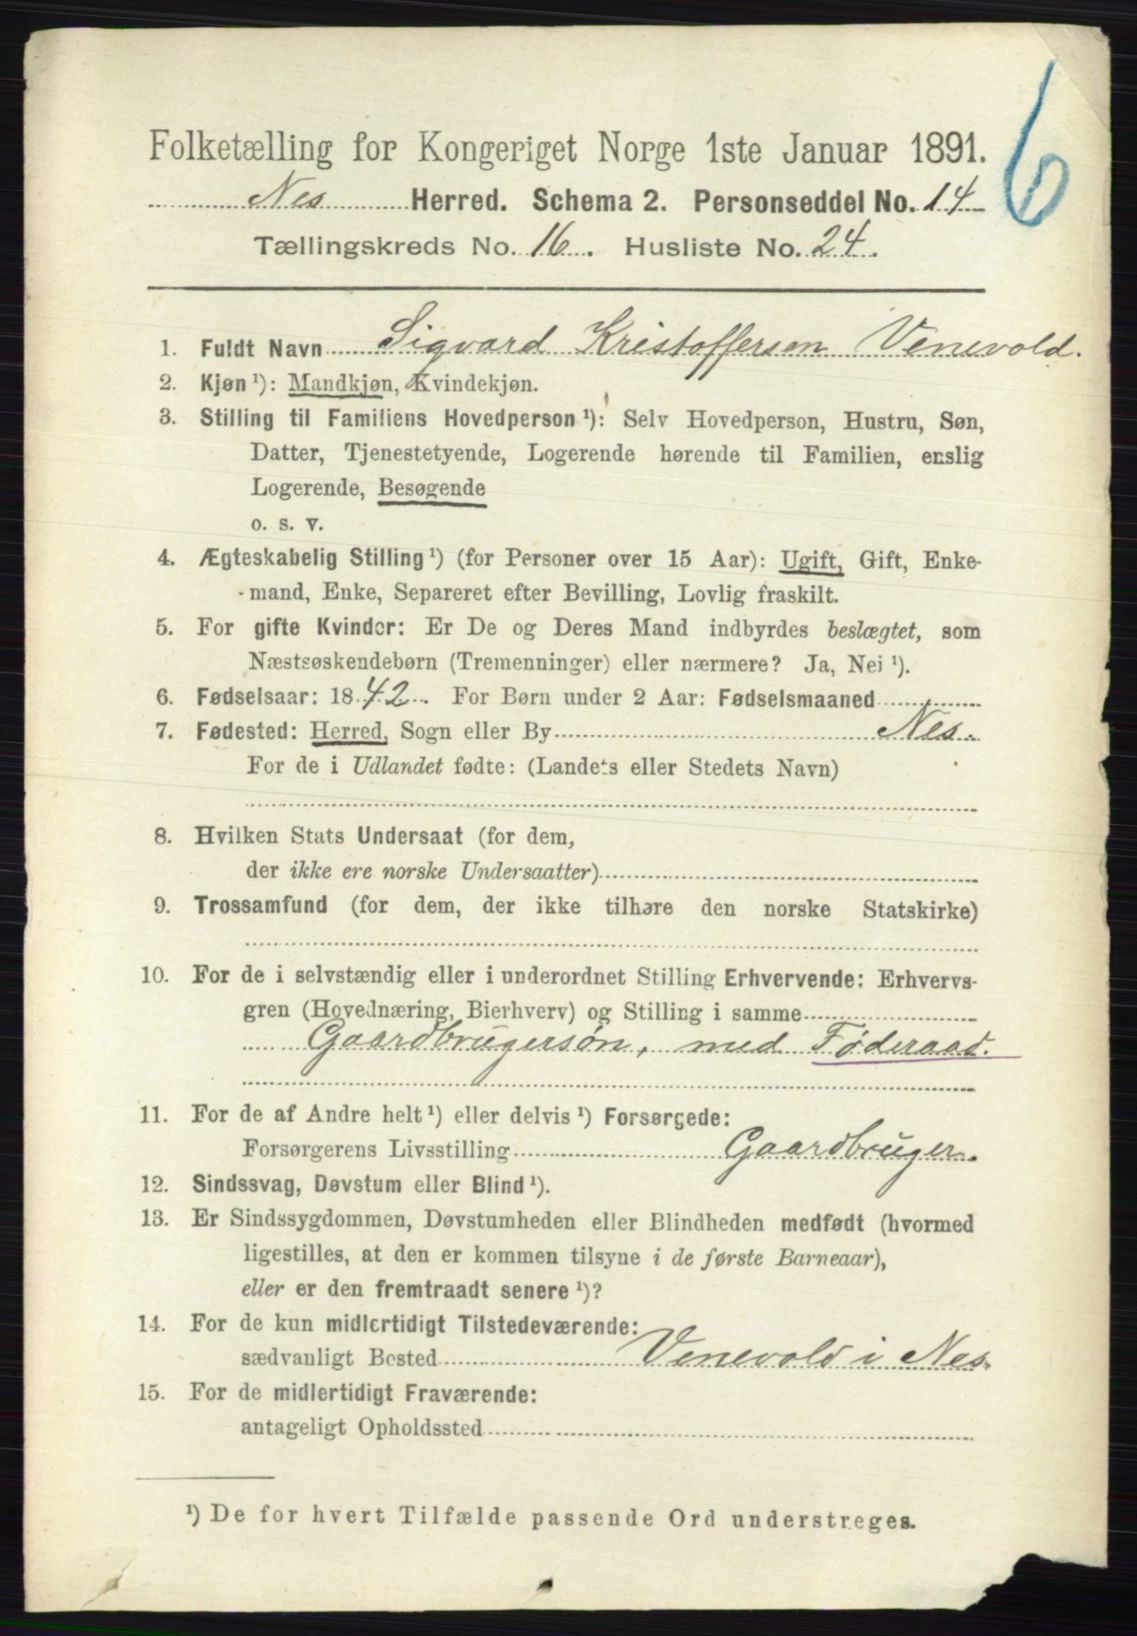 6
Folketælling for Kongeriget Norge 1ste Januar 1891.
Nes Herred. Schema 2. Personseddel No. 14
Tællingskreds No. 16. Husliste No. 24.
1. Fuldt Navn Sigvard Kristoffersen Venevold.
2. Kjøn ¹): Mandkjøn, Kvindekjøn.
3. Stilling til Familiens Hovedperson ¹): Selv Hovedperson, Hustru, Søn,
Datter, Tjenestetyende, Logerende hørende til Familien, enslig
Logerende, Besøgende
o. s. v.
4. Ægteskabelig Stilling ¹) (for Personer over 15 Aar): Ugift, Gift, Enke-
mand, Enke, Separeret efter Bevilling, Lovlig fraskilt.
5. For gifte Kvinder: Er De og Deres Mand indbyrdes beslægtet, som
Næstsøskendebørn (Tremenninger) eller nærmere? Ja, Nei ¹).
6. Fødselsaar: 1842. For Børn under 2 Aar: Fødselsmaaned
7. Fødested: Herred, Sogn eller By Nes.
For de i Udlandet fødte: (Landets eller Stedets Navn)
8. Hvilken Stats Undersaat (for dem,
der ikke ere norske Undersaatter)
9. Trossamfund (for dem, der ikke tilhøre den norske Statskirke)
10. For de i selvstændig eller i underordnet Stilling Erhvervende: Erhvervs-
gren (Hovednæring, Bierhverv) og Stilling i samme
Gaardbrugersøn, med Føderaad.
11. For de af Andre helt ¹) eller delvis ¹) Forsørgede:
Forsørgerens Livsstilling Gaardbruger.
12. Sindssvag, Døvstum eller Blind ¹).
13. Er Sindssygdommen, Døvstumheden eller Blindheden medfødt (hvormed
ligestilles, at den er kommen tilsyne i de første Barneaar),
eller er den fremtraadt senere ¹)?
14. For de kun midlertidigt Tilstedeværende:
sædvanligt Bosted Venevold i Nes.
15. For de midlertidigt Fraværende:
antageligt Opholdssted
¹) De for hvert Tilfælde passende Ord understreges.